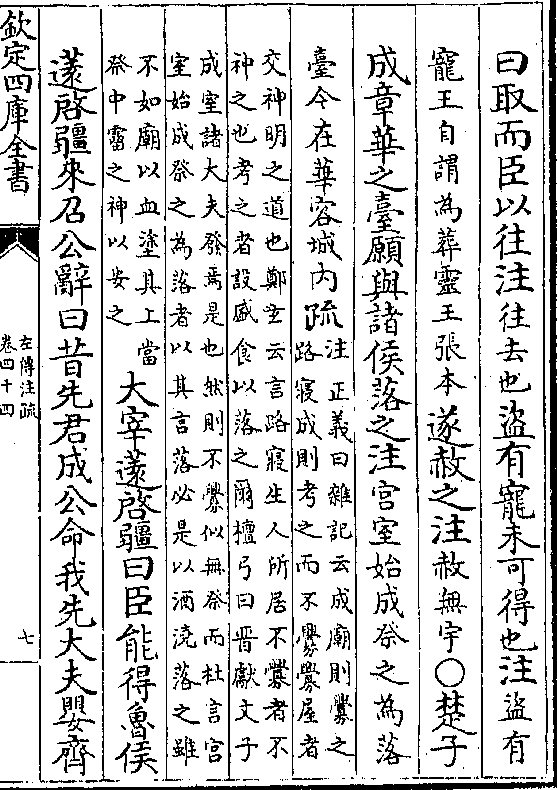 曰取而臣以往注往去也盜有寵未可得也注盜有
寵王自謂為葬靈王張本遂赦之注赦無宇○楚子
成章華之臺願與諸侯落之注宮室始成祭之為落
臺今在華容城內疏
注正義曰雜記云成廟則釁之
路寢成則考之而不釁釁屋者
交神明之道也鄭玄云言路寢生人所居不釁者不
神之也考之者設盛食以落之爾檀弓曰晉獻文子
成室諸大夫發焉是也然則不釁似無祭而杜言宮
室始成祭之為落者以其言落必是以酒澆落之雖
不如廟以血塗其上當
祭中霤之神以安之
大宰薳啓疆曰臣能得魯侯
薳啓疆來召公辭曰昔先君成公命我先大夫嬰齊
欽定四庫全書
左傳注疏
卷四十四
七